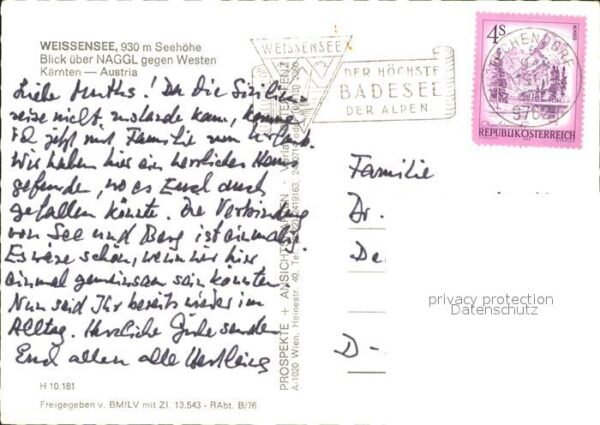 WEISSENSEE, 930 m Seehöhe
Blick über NAGGL gegen Westen
Kärnten — Austria
Liebe! Da die Sizilien
reise nicht zustande kam, komme
ich jetzt mit Familie zum Urlaub.
Wir haben hier ein herrliches Haus
gefunden, wo es Euch auch
gefallen könnte. Die Verbindung
von See und Berg ist einmalig.
Es wäre schön, wenn wir hier
einmal gemeinsam sein könnten.
Nun seid Ihr bereits wieder im
Alltag. Herzliche Grüße senden
Euch allen alle
H 10.181
Freigegeben v. BMILV mit Zl. 13.543 - RAbt. B/76
PROSPEKTE + ANSICHTSKARTEN
A-1020 Wien, Heinestr. 40, Tel.
WEISSENSEE
DER HÖCHSTE
BADESEE
DER ALPEN
4S
REPUBLIK ÖSTERREICH
Familie
Dr.
De
D-
privacy protection
Datenschutz